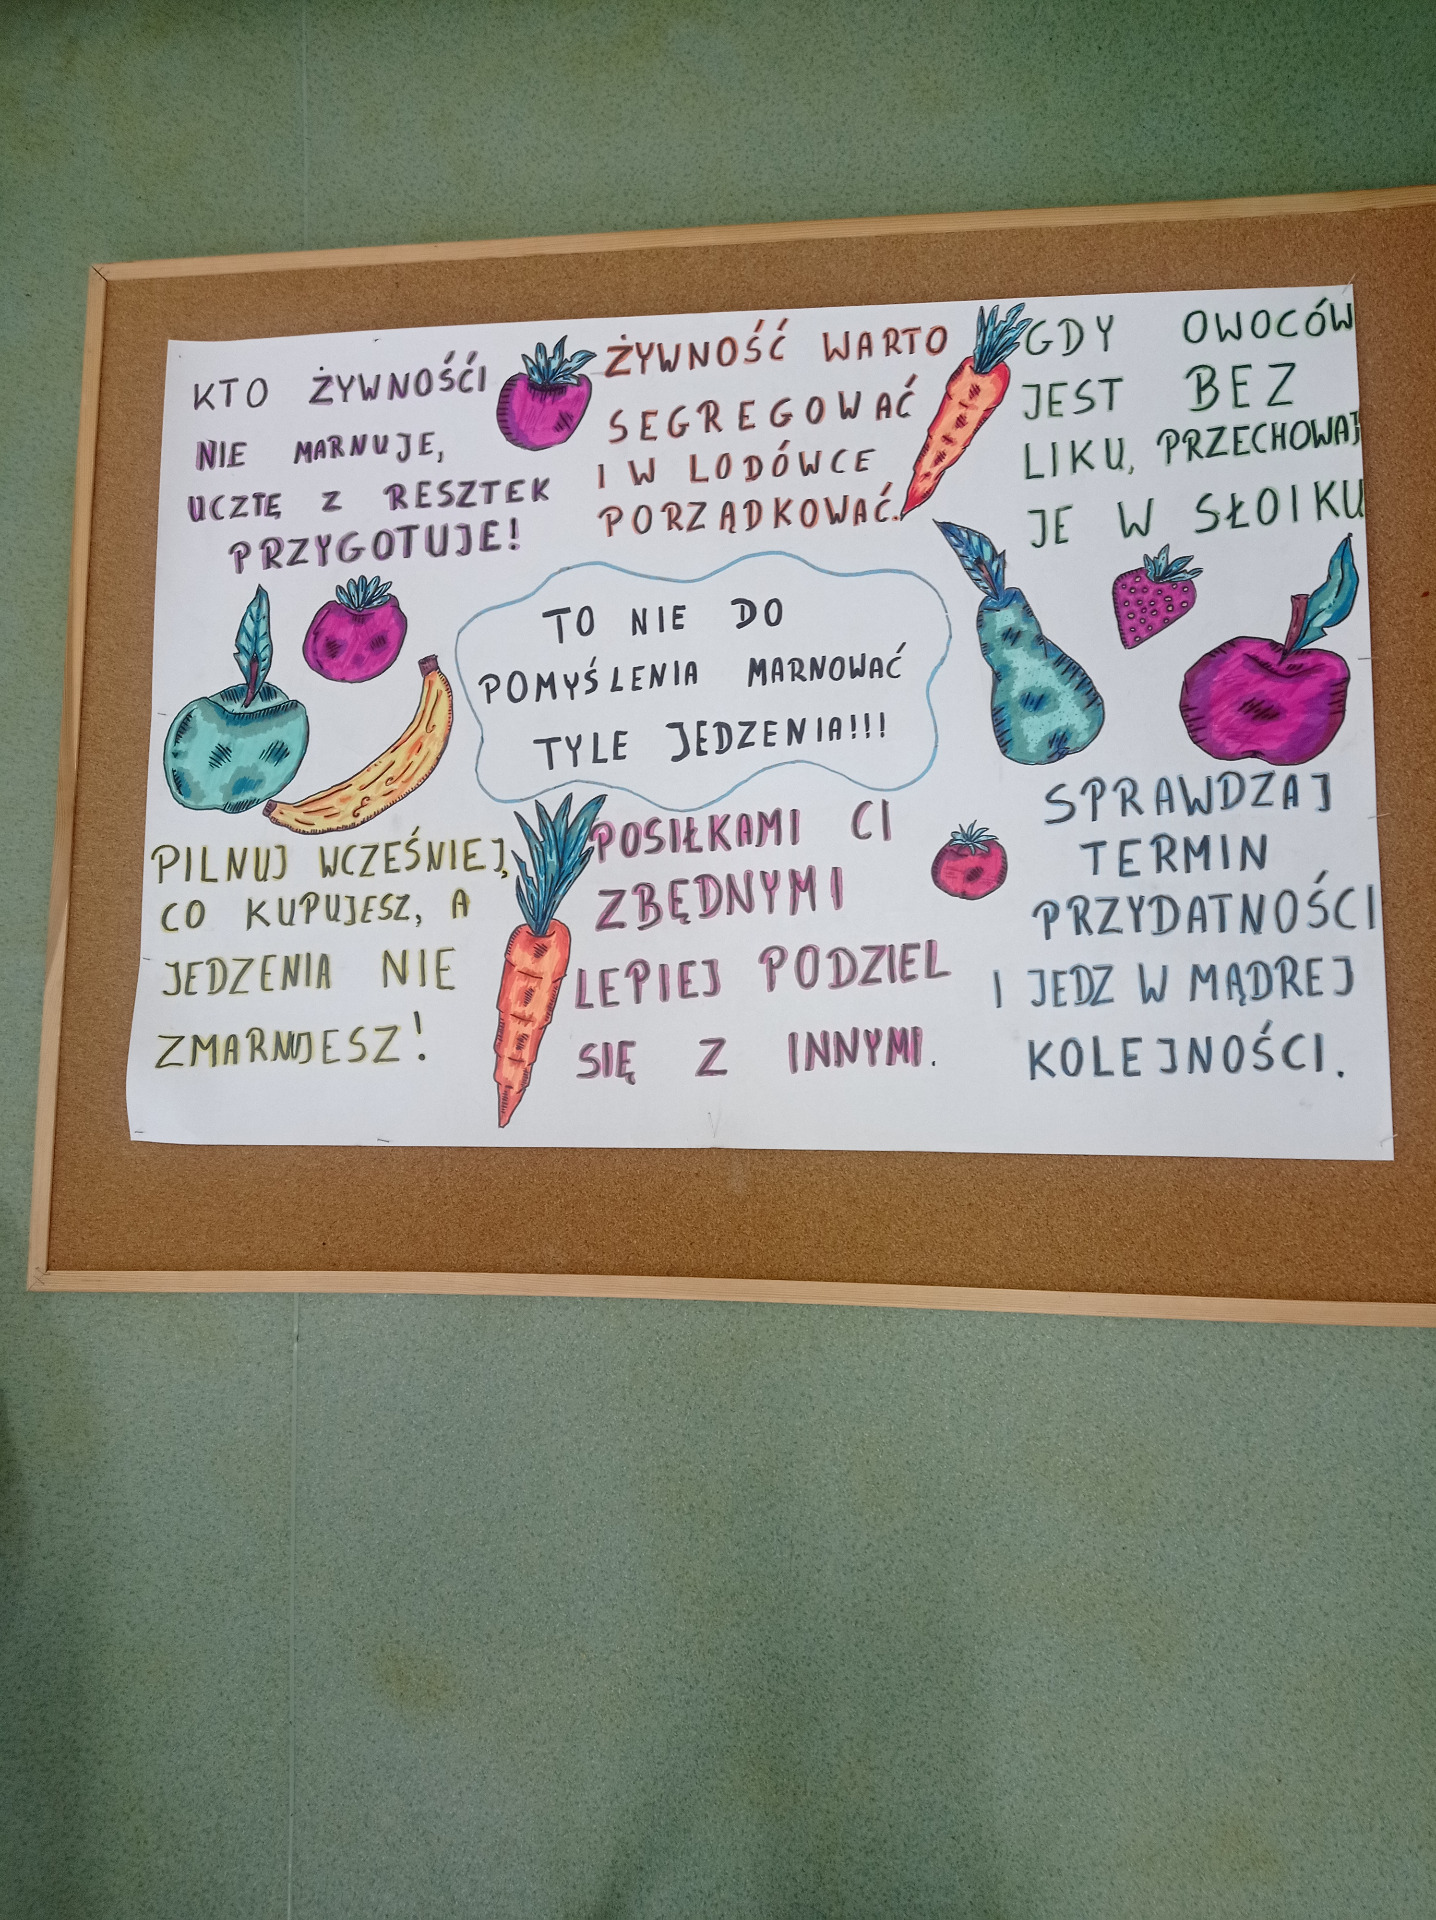 KTO ŻYWNOŚĆI
NIE MARNUJE,
UCZTĘ Z RESZTEK
PRZYGOTUJE!
ŻYWNOŚĆ WARTO
SEGREGOWAĆ
I W LODÓWCE
PORZĄDKOWAĆ.
GDY OWOCÓW
JEST BEZ
LIKU, PRZECHOWAJ
JE W SŁOIKU
TO NIE DO
POMYŚLENIA MARNOWAĆ
TYLE JEDZENIA!!!
PILNUJ WCZEŚNIEJ,
CO KUPUJESZ, A
JEDZENIA NIE
ZMARNUJESZ!
POSIŁKAMI CI
ZBĘDNYMI
LEPIEJ PODZIEL
SIĘ Z INNYMI.
SPRAWDZAJ
TERMIN
PRZYDATNOŚCI
I JEDZ W MĄDREJ
KOLEJNOŚCI.